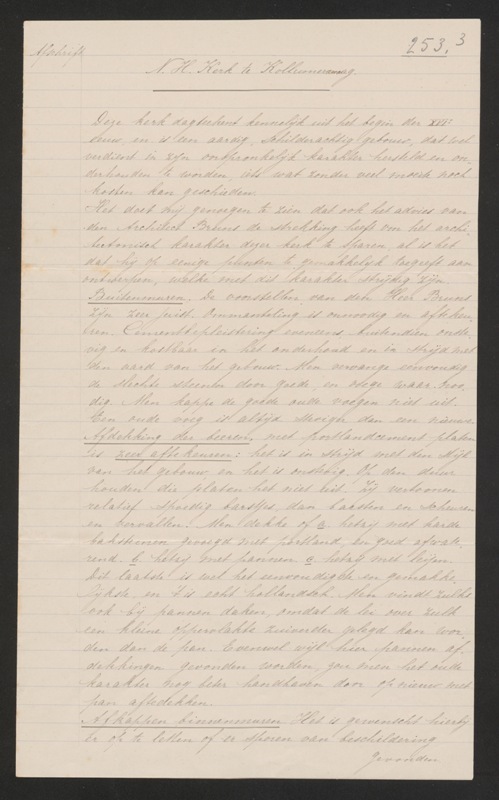 Afschrift
253. 3
N. H. Kerk te Kollumerzwaag.
Deze kerk dagteekent kennelijk uit het begin der XVIe
eeuw, en is een aardig, schilderachtig gebouw, dat wel
verdient in zijn oorspronkelijk karakter hersteld en on-
derhouden te worden, iets wat zonder veel moeite noch
kosten kan geschieden.
Het doet mij genoegen te zien dat ook het advies van
den Architect Bruns de strekking heeft om het archi-
tectonisch karakter dezer kerk te sparen, al is het
dat hij op eenige punten te gemakkelijk toegeeft aan
ontwerpen, welke met dit karakter strijdig zijn
Buitenmuren. De voorstellen van den Heer Bruns
zijn zeer juist. Ommanteling is onnoodig en af te keu-
ren. Cementbepleistering eveneens, buitendien onste-
vig en kostbaar in het onderhoud en in strijd met
den aard van het gebouw. Men vervange eenvoudig
de slechte steenen door goede, en voege waar noo-
dig. Men kappe de goede oude voegen niet uit.
Een oude voeg is altijd steviger dan een nieuwe.
Afdekking der beeren, met portlandcement platen
is zeer af te keuren: het is in strijd met den stijl
van het gebouw, en het is onstevig. Op den duur
houden die platen het niet uit. Zij vertoonen
relatief spoedig barstjes, dan barsten en scheuren
en vervallen. Men dekke of a. hetzij met harde
baksteenen gevoegd met portland, en goed afwate-
rend. b. hetzij met pannen c. hetzij met leijen.
Dit laatste is wel het eenvoudigste en gemakke-
lijkste, en 't is echt hollandsch. Men vindt zulks
ook bij pannen daken, omdat de lei over zulk
een kleine oppervlakte zuiverder gelegd kan wor-
den dan de pan. Evenwel wijl hier pannen af-
dekkingen gevonden worden, zou men het oude
karakter nog beter handhaven door op nieuw met
pan af te dekken.
Afkappen binnenmuren. Het is gewenscht hierbij
er op te letten of er sporen van beschildering
gevonden